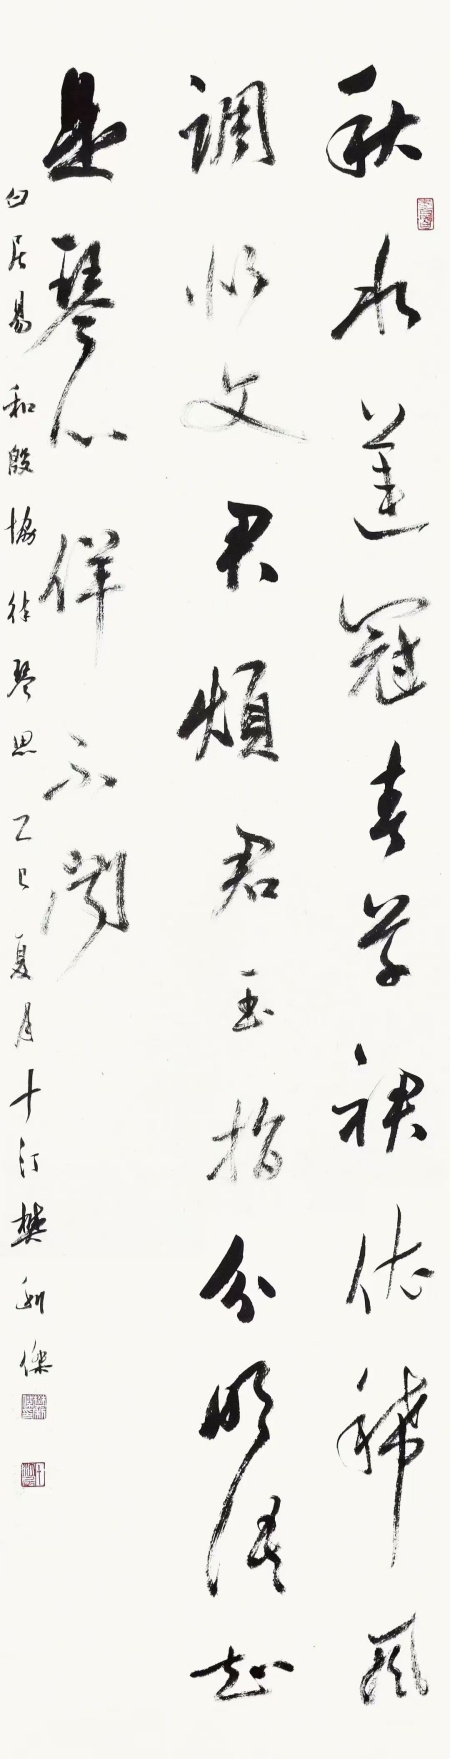 秋水蓮冠春草裙依稀風
調似文君煩君玉指分明語知
是琴心佯不聞
白居易和殷協律琴思乙巳夏月十汀樊傑